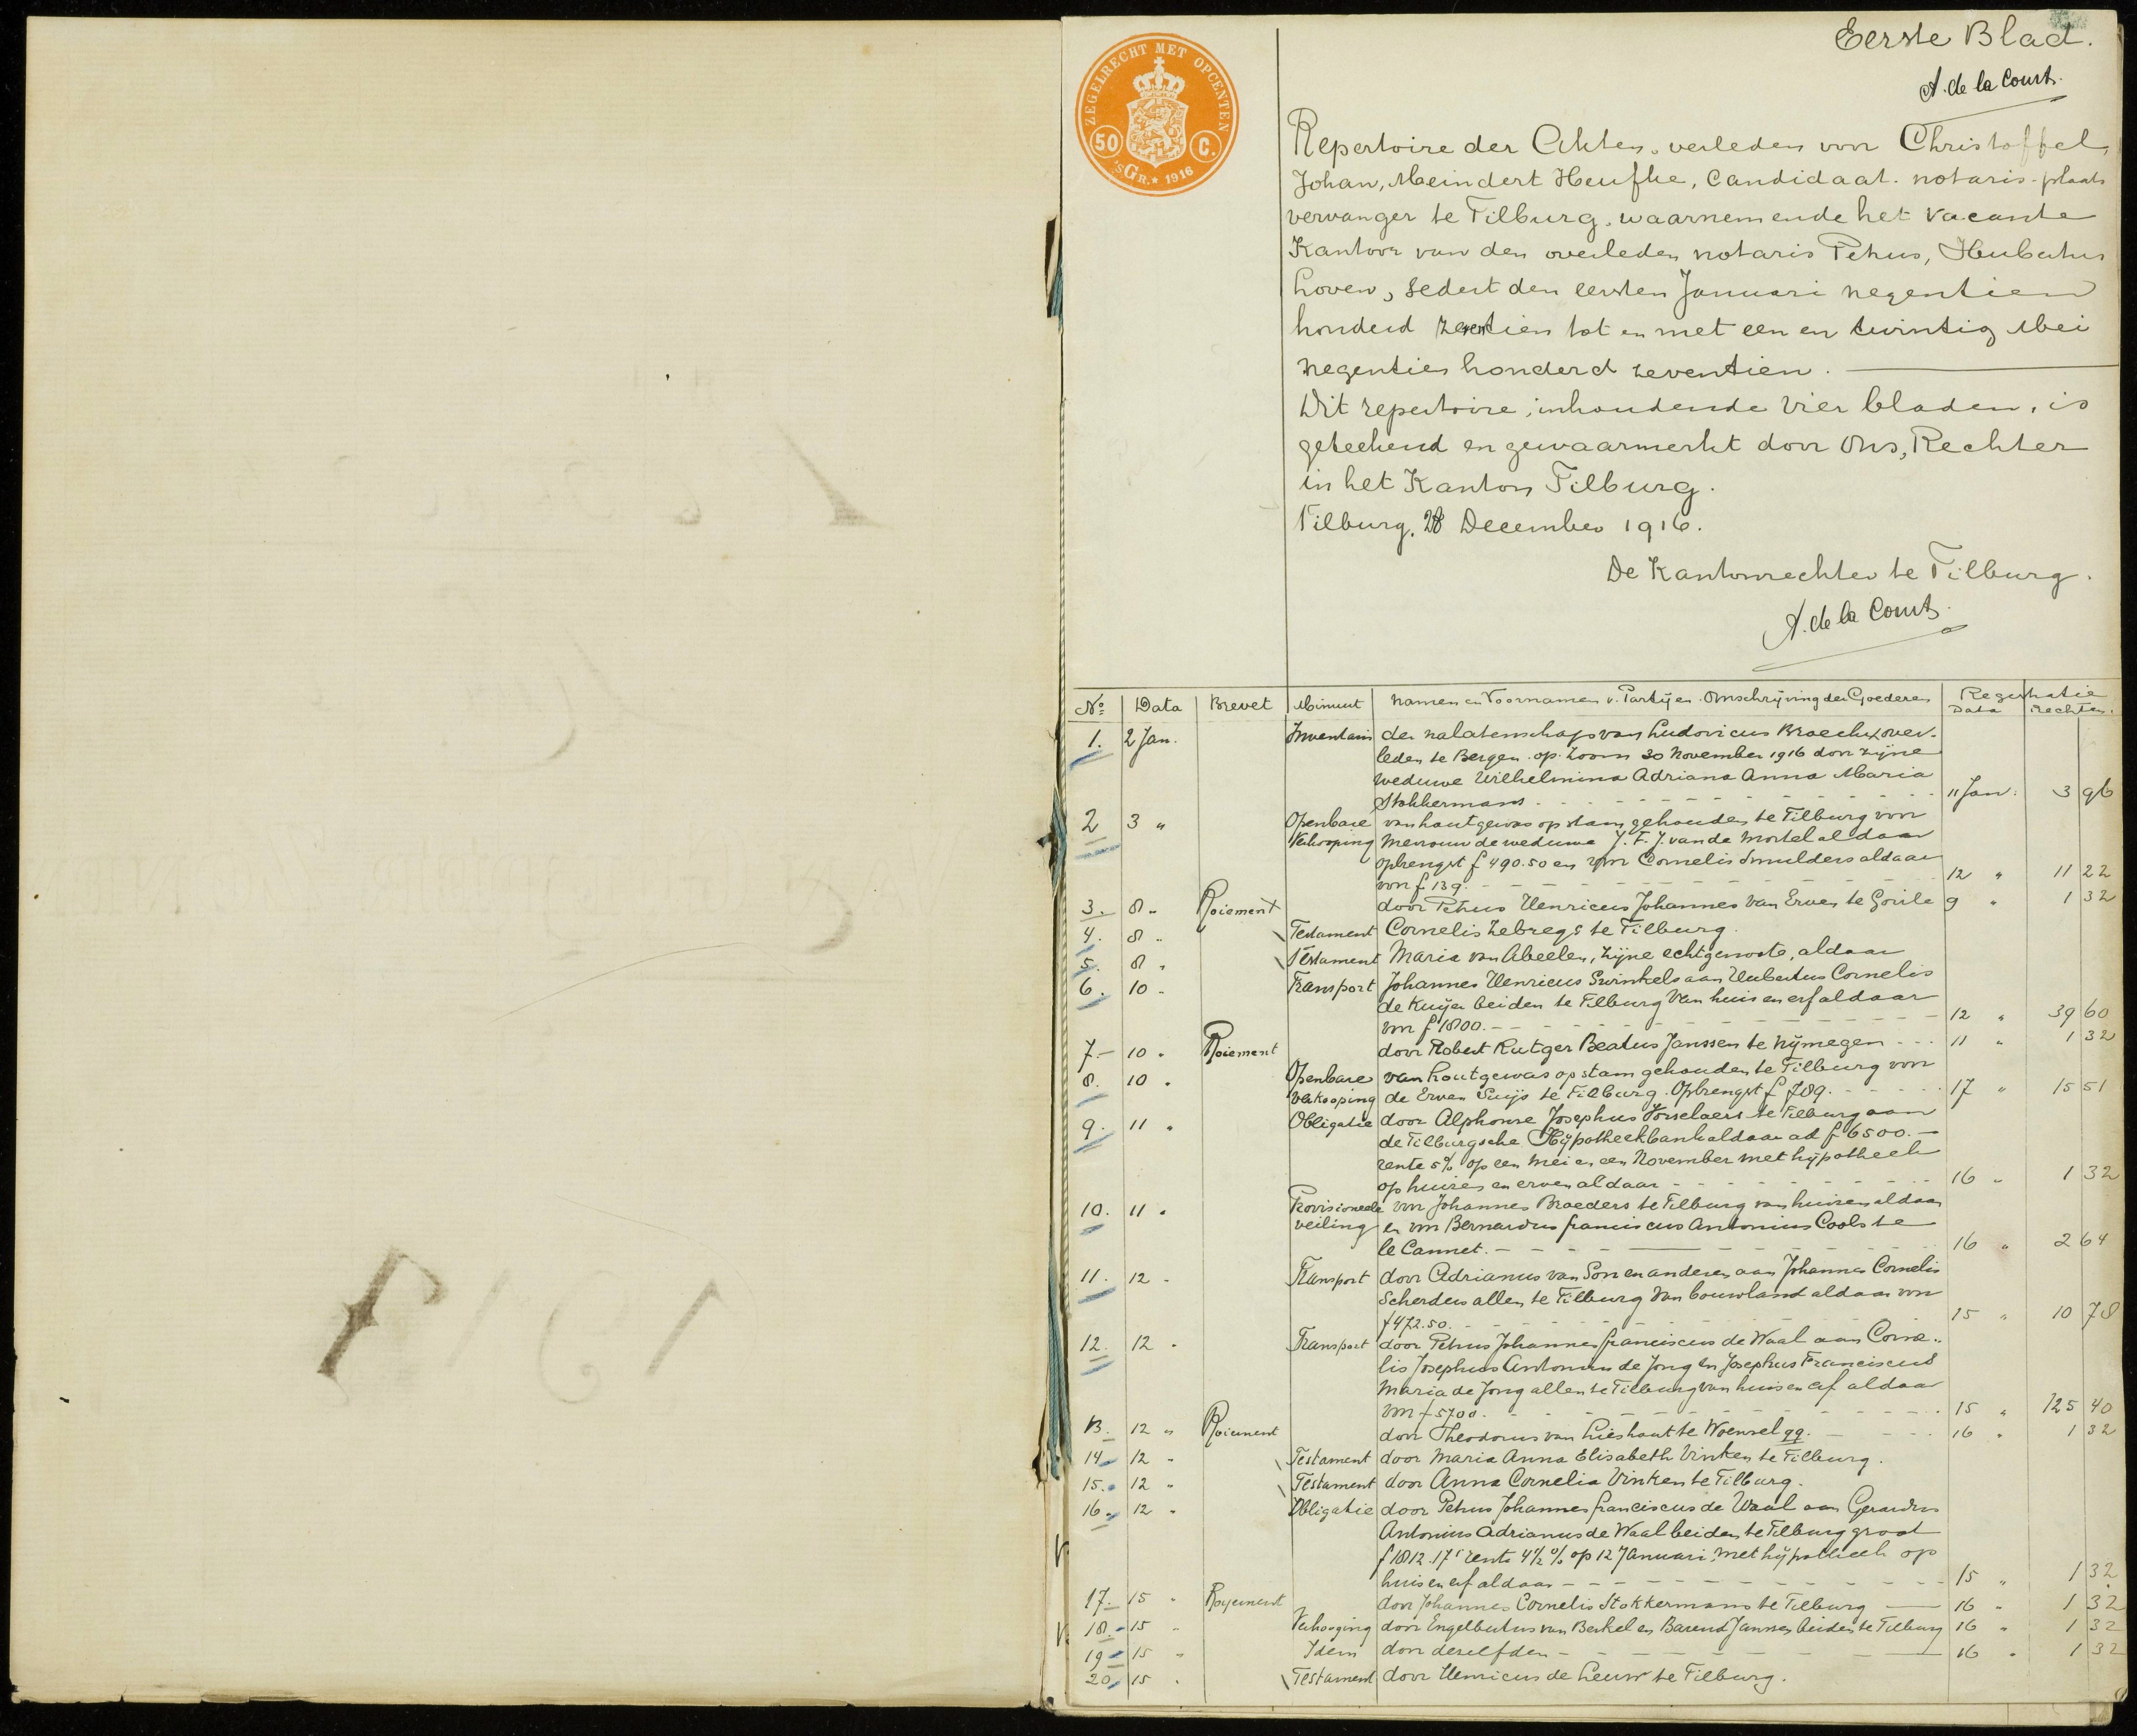 Eerste Blad.
A. de la Court.
ZEGELRECHT MET OPCENTEN
50 C.
'SGR. * 1916
Repertoire der Akten, verleden voor Christoffel,
Johan, Meindert Heufke, Candidaat-notaris-plaats
vervanger te Tilburg, waarnemende het vacante
Kantoor van den overleden notaris Petrus, Hubertus
Loven, sedert den eersten Januari negentien
honderd zeventien tot en met een en twintig Mei
negentien honderd zeventien.
Dit repertoire, inhoudende vier bladen, is
geteekend en gewaarmerkt door Ons, Rechter
in het Kanton Tilburg.
Tilburg, 28 December 1916.
De Kantonrechter te Tilburg.
A. de la Court.
No Data Brevet Minuut Namen en Voornamen v. Partijen. Omschrijving der Goederen Registratie
Data Rechten.
1. 2 Jan. Inventaris der nalatenschap van Ludovicus Broeckx over-
leden te Bergen op Zoom 30 November 1916 door zijne
weduwe Wilhelmina Adriana Anna Maria
Stokkermans 11 Jan. 3 96
2 3 " Openbare van houtgewas op stam gehouden te Tilburg voor
Verkooping Mevrouw de weduwe J. F. J. van de Mortel aldaar
opbrengst f 490.50 en voor Cornelis Smulders aldaar
voor f 139. 12 " 11 22
3. 8 " Roiement door Petrus Henricus Johannes van Erven te Goirle 9 " 1 32
4. 8 " Testament Cornelis Zebregs te Tilburg.
5. 8 " Testament Maria van Abeelen, zijne echtgenoote, aldaar
6. 10 " Transport Johannes Henricus Swinkels aan Hubertus Cornelis
de Kuijer beiden te Tilburg van huis en erf aldaar
voor f 1800. 12 " 39 60
7. 10 " Roiement door Robert Rutger Beatus Janssen te Nijmegen 11 " 1 32
8. 10 " Openbare van houtgewas op stam gehouden te Tilburg voor
verkooping de Erven Suijs te Tilburg. Opbrengst f 789. 17 " 15 51
9. 11 " Obligatie door Alphonse Josephus Vorselaers te Tilburg aan
de Tilburgsche Hypotheekbank aldaar ad f 6500.-
rente 5% op een Mei en een November met hypotheek
op huizen en erven aldaar 16 " 1 32
10. 11 " Provisioneele voor Johannes Broeders te Tilburg van huizen aldaar
veiling en voor Bernardus Franciscus Antonius Cools te
le Cannet. 16 " 2 64
11. 12 " Transport door Adrianus van Son en anderen aan Johannes Cornelis
Scherders allen te Tilburg van bouwland aldaar voor
f 472.50. 15 " 10 78
12. 12 " Transport door Petrus Johannes Franciscus de Waal aan Corne-
lis Josephus Antonius de Jong en Josephus Franciscus
Maria de Jong allen te Tilburg van huis en erf aldaar
voor f 5700. 15 " 125 40
13. 12 " Roiement door Theodorus van Lieshout te Woensel qq. 16 " 1 32
14 12 " Testament door Maria Anna Elisabeth Vinken te Tilburg.
15. 12 " Testament door Anna Cornelia Vinken te Tilburg.
16. 12 " Obligatie door Petrus Johannes Franciscus de Waal aan Gerardus
Antonius Adrianus de Waal beiden te Tilburg groot
f 1812.17 rente 4 1/2 % op 12 Januari, met hypotheek op
huis en erf aldaar 15 " 1 32
17. 15 " Royement door Johannes Cornelis Stokkermans te Tilburg 16 " 1 32
18. 15 " Verhooging door Engelbertus van Berkel en Barend Jansen beiden te Tilburg 16 " 1 32
19 15 " Idem door dezelfden 16 " 1 32
20. 15 " Testament door Henricus de Leuw te Tilburg.